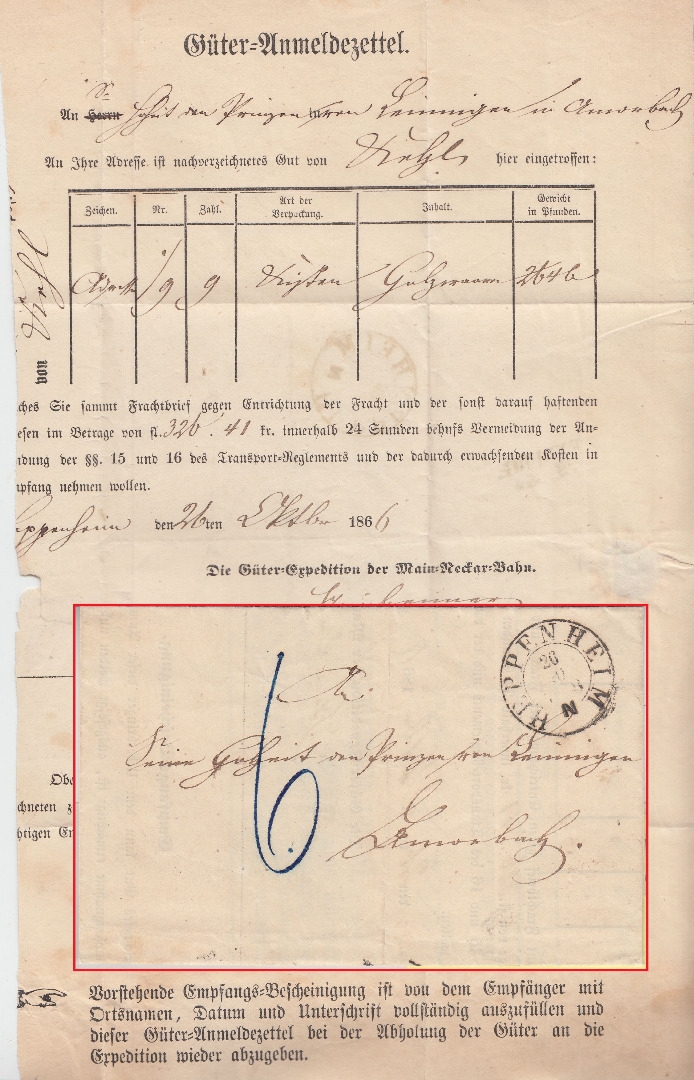 Güter-Anmeldezettel.
Sr
An Herrn Hoheit den Prinzen von Leiningen in Amorbach
An Ihre Adresse ist nachverzeichnetes Gut von Kehl hier eingetroffen:
Zeichen. Nr. Zahl. Art der Verpackung. Inhalt. Gewicht in Pfunden.
Adresse 1/9 9 Kisten Holzwaaren 2646
von Kehl
ches Sie sammt Frachtbrief gegen Entrichtung der Fracht und der sonst darauf haftenden
esen im Betrage von fl. 326. 41 kr. innerhalb 24 Stunden behufs Vermeidung der An-
ndung der §§. 15 und 16 des Transport-Reglements und der dadurch erwachsenden Kosten in
mpfang nehmen wollen.
eppenheim den 26ten Oktbr 1866
Die Güter-Expedition der Main-Neckar-Bahn.
HEPPENHEIM
26
N
6
An
Seine Hoheit den Prinzen von Leiningen
Amorbach.
Obe
chneten z
htigen En
Vorstehende Empfangs-Bescheinigung ist von dem Empfänger mit
Ortsnamen, Datum und Unterschrift vollständig auszufüllen und
dieser Güter-Anmeldezettel bei der Abholung der Güter an die
Expedition wieder abzugeben.